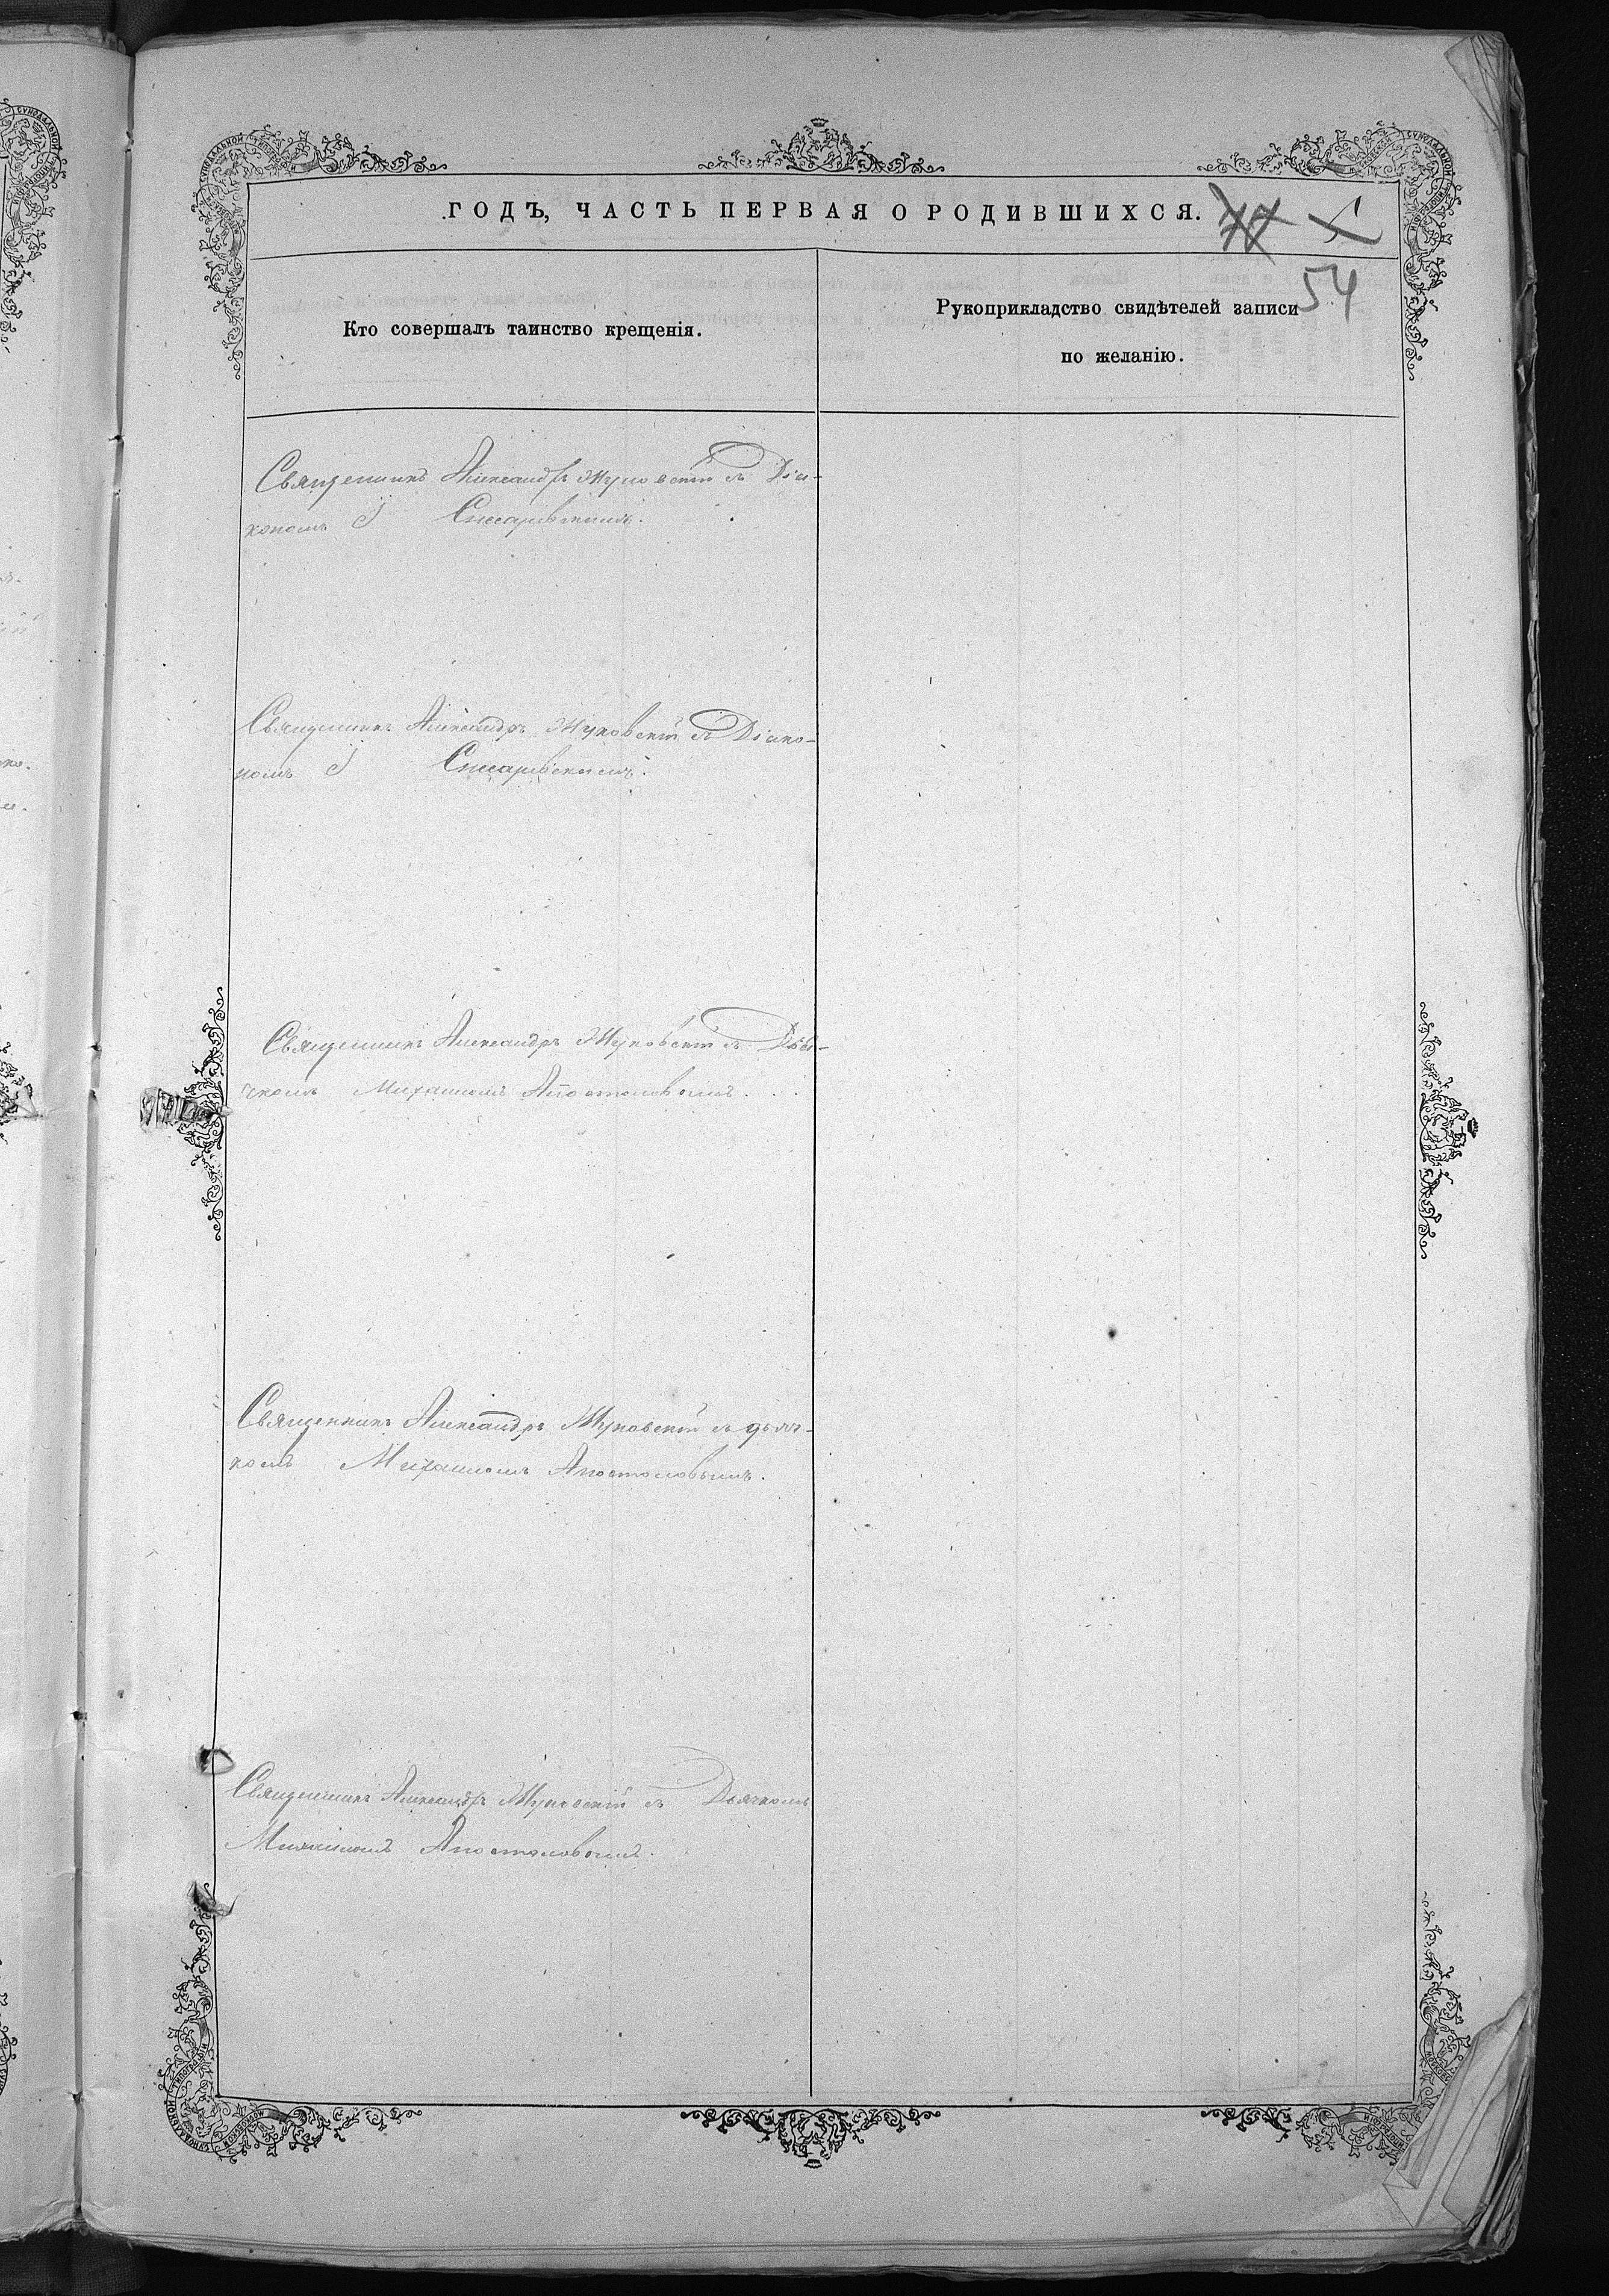 ГОДЪ, ЧАСТЬ ПЕРВАЯ О РОДИВШИХСЯ.
54
Кто совершалъ таинство крещенія.
Рукоприкладство свидѣтелей записи
по желанію.
Священникъ Александръ Жуковскій съ Діа-
кономъ І Снесаревскимъ.
Священникъ Александръ Жуковскій съ Діако-
номъ І Снесаревскимъ.
Священникъ Александръ Жуковскій съ
чкомъ Михаиломъ Апостоловымъ.
Священникъ Александръ Жуковскій съ дьяч-
комъ Михаиломъ Апостоловымъ.
Священникъ Александръ Жуковскій съ Дьячкомъ
Михаиломъ Апостоловымъ.